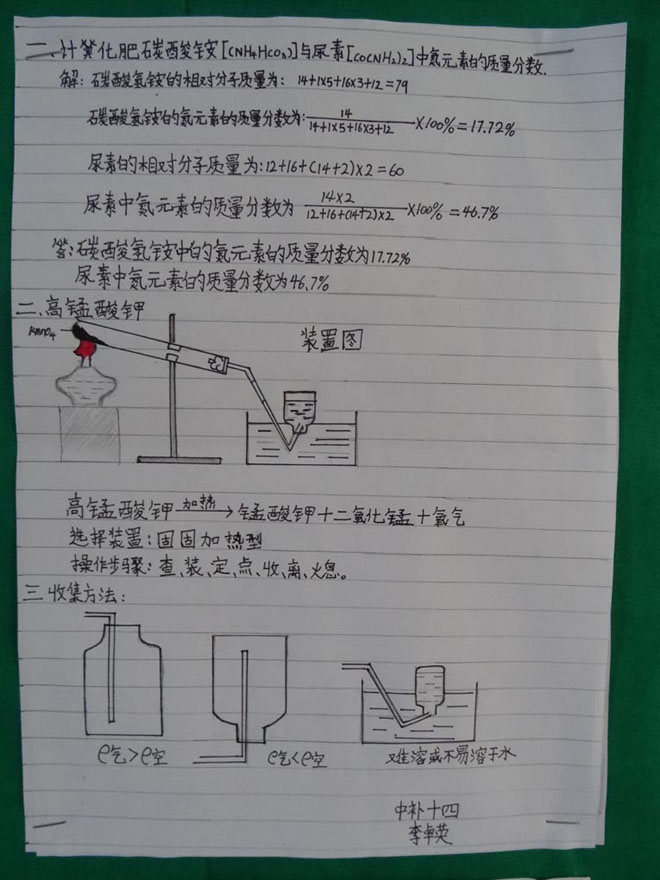 一、计算化肥碳酸氢铵[CNH4HCO3]与尿素[CO(NH2)2]中氮元素的质量分数.
解:碳酸氢铵的相对分子质量为: 14+1×5+16×3+12=79
碳酸氢铵的氮元素的质量分数为: 14/14+1×5+16×3+12 ×100%=17.72%
尿素的相对分子质量为:12+16+(14+2)×2=60
尿素中氮元素的质量分数为 14×2/12+16+(14+2)×2 ×100%=46.7%
答:碳酸氢铵中的氮元素的质量分数为17.72%
尿素中氮元素的质量分数为46.7%
二、高锰酸钾
KMnO4
装置图
高锰酸钾 加热→ 锰酸钾+二氧化锰+氧气
选择装置:固固加热型
操作步骤:查、装、定、点、收、离、熄。
三 收集方法:
ρ气>ρ空
ρ气<ρ空
难溶或不易溶于水
中补十四
李卓英